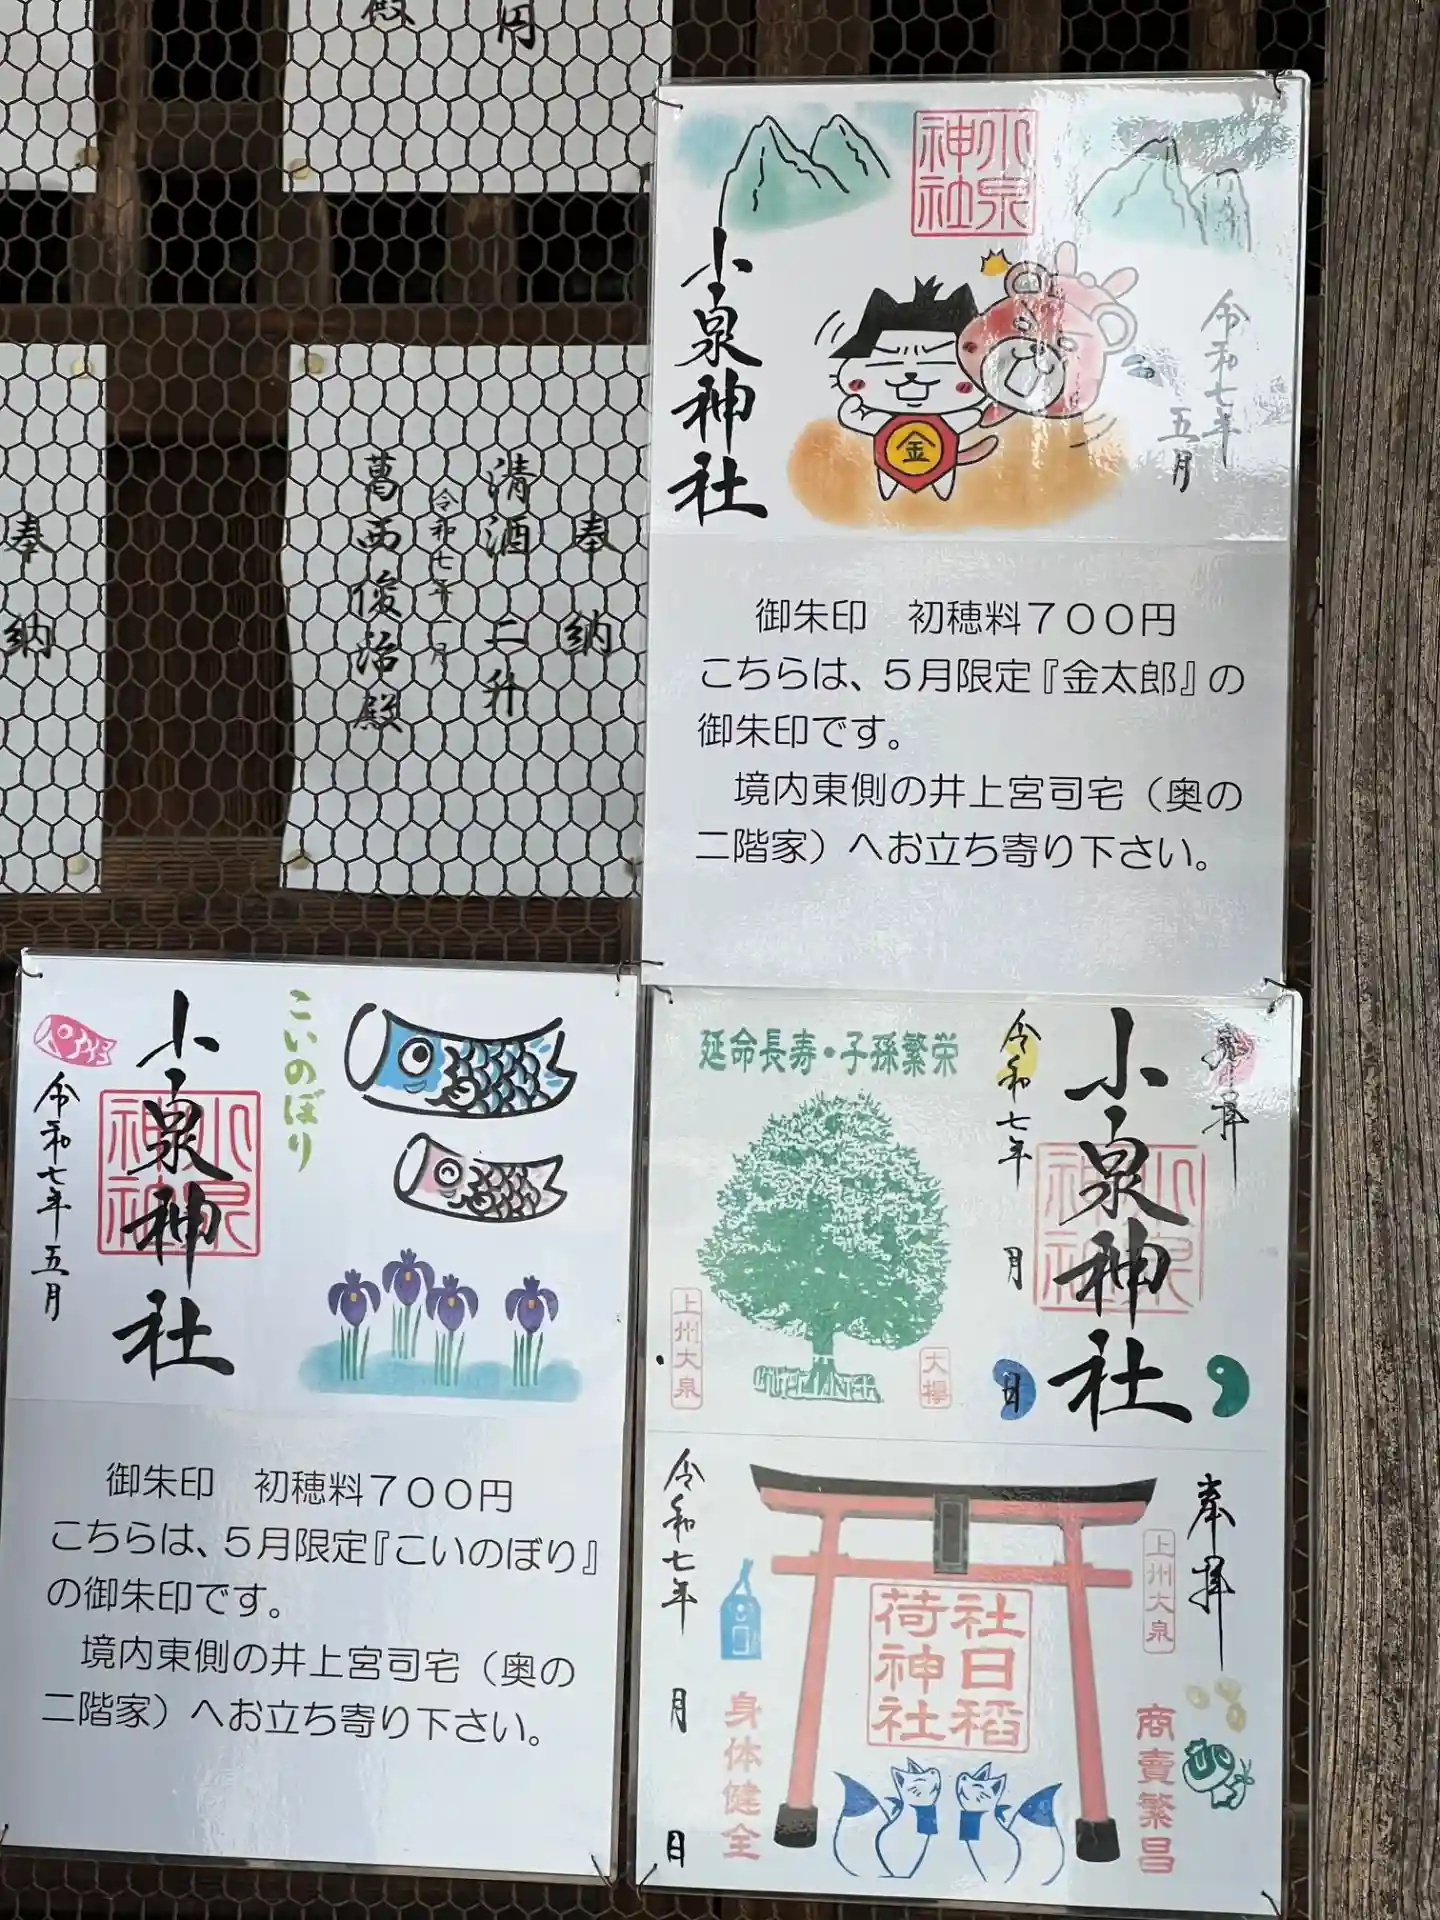 殿
円
奉納
清酒 二升
令和七年一月
葛西俊治殿
奉納
小泉神社
小泉神社
金
令和七年
五月
御朱印 初穂料７００円
こちらは、５月限定『金太郎』の
御朱印です。
境内東側の井上宮司宅（奥の
二階家）へお立ち寄り下さい。
こいのぼり
小泉神社
小泉神社
令和七年五月
御朱印 初穂料７００円
こちらは、５月限定『こいのぼり』
の御朱印です。
境内東側の井上宮司宅（奥の
二階家）へお立ち寄り下さい。
奉拝
小泉神社
小泉神社
令和七年 月 日
延命長寿・子孫繁栄
上州大泉
大欅
奉拝
上州大泉
商賣繁昌
社日稲荷神社
身体健全
令和七年 月 日